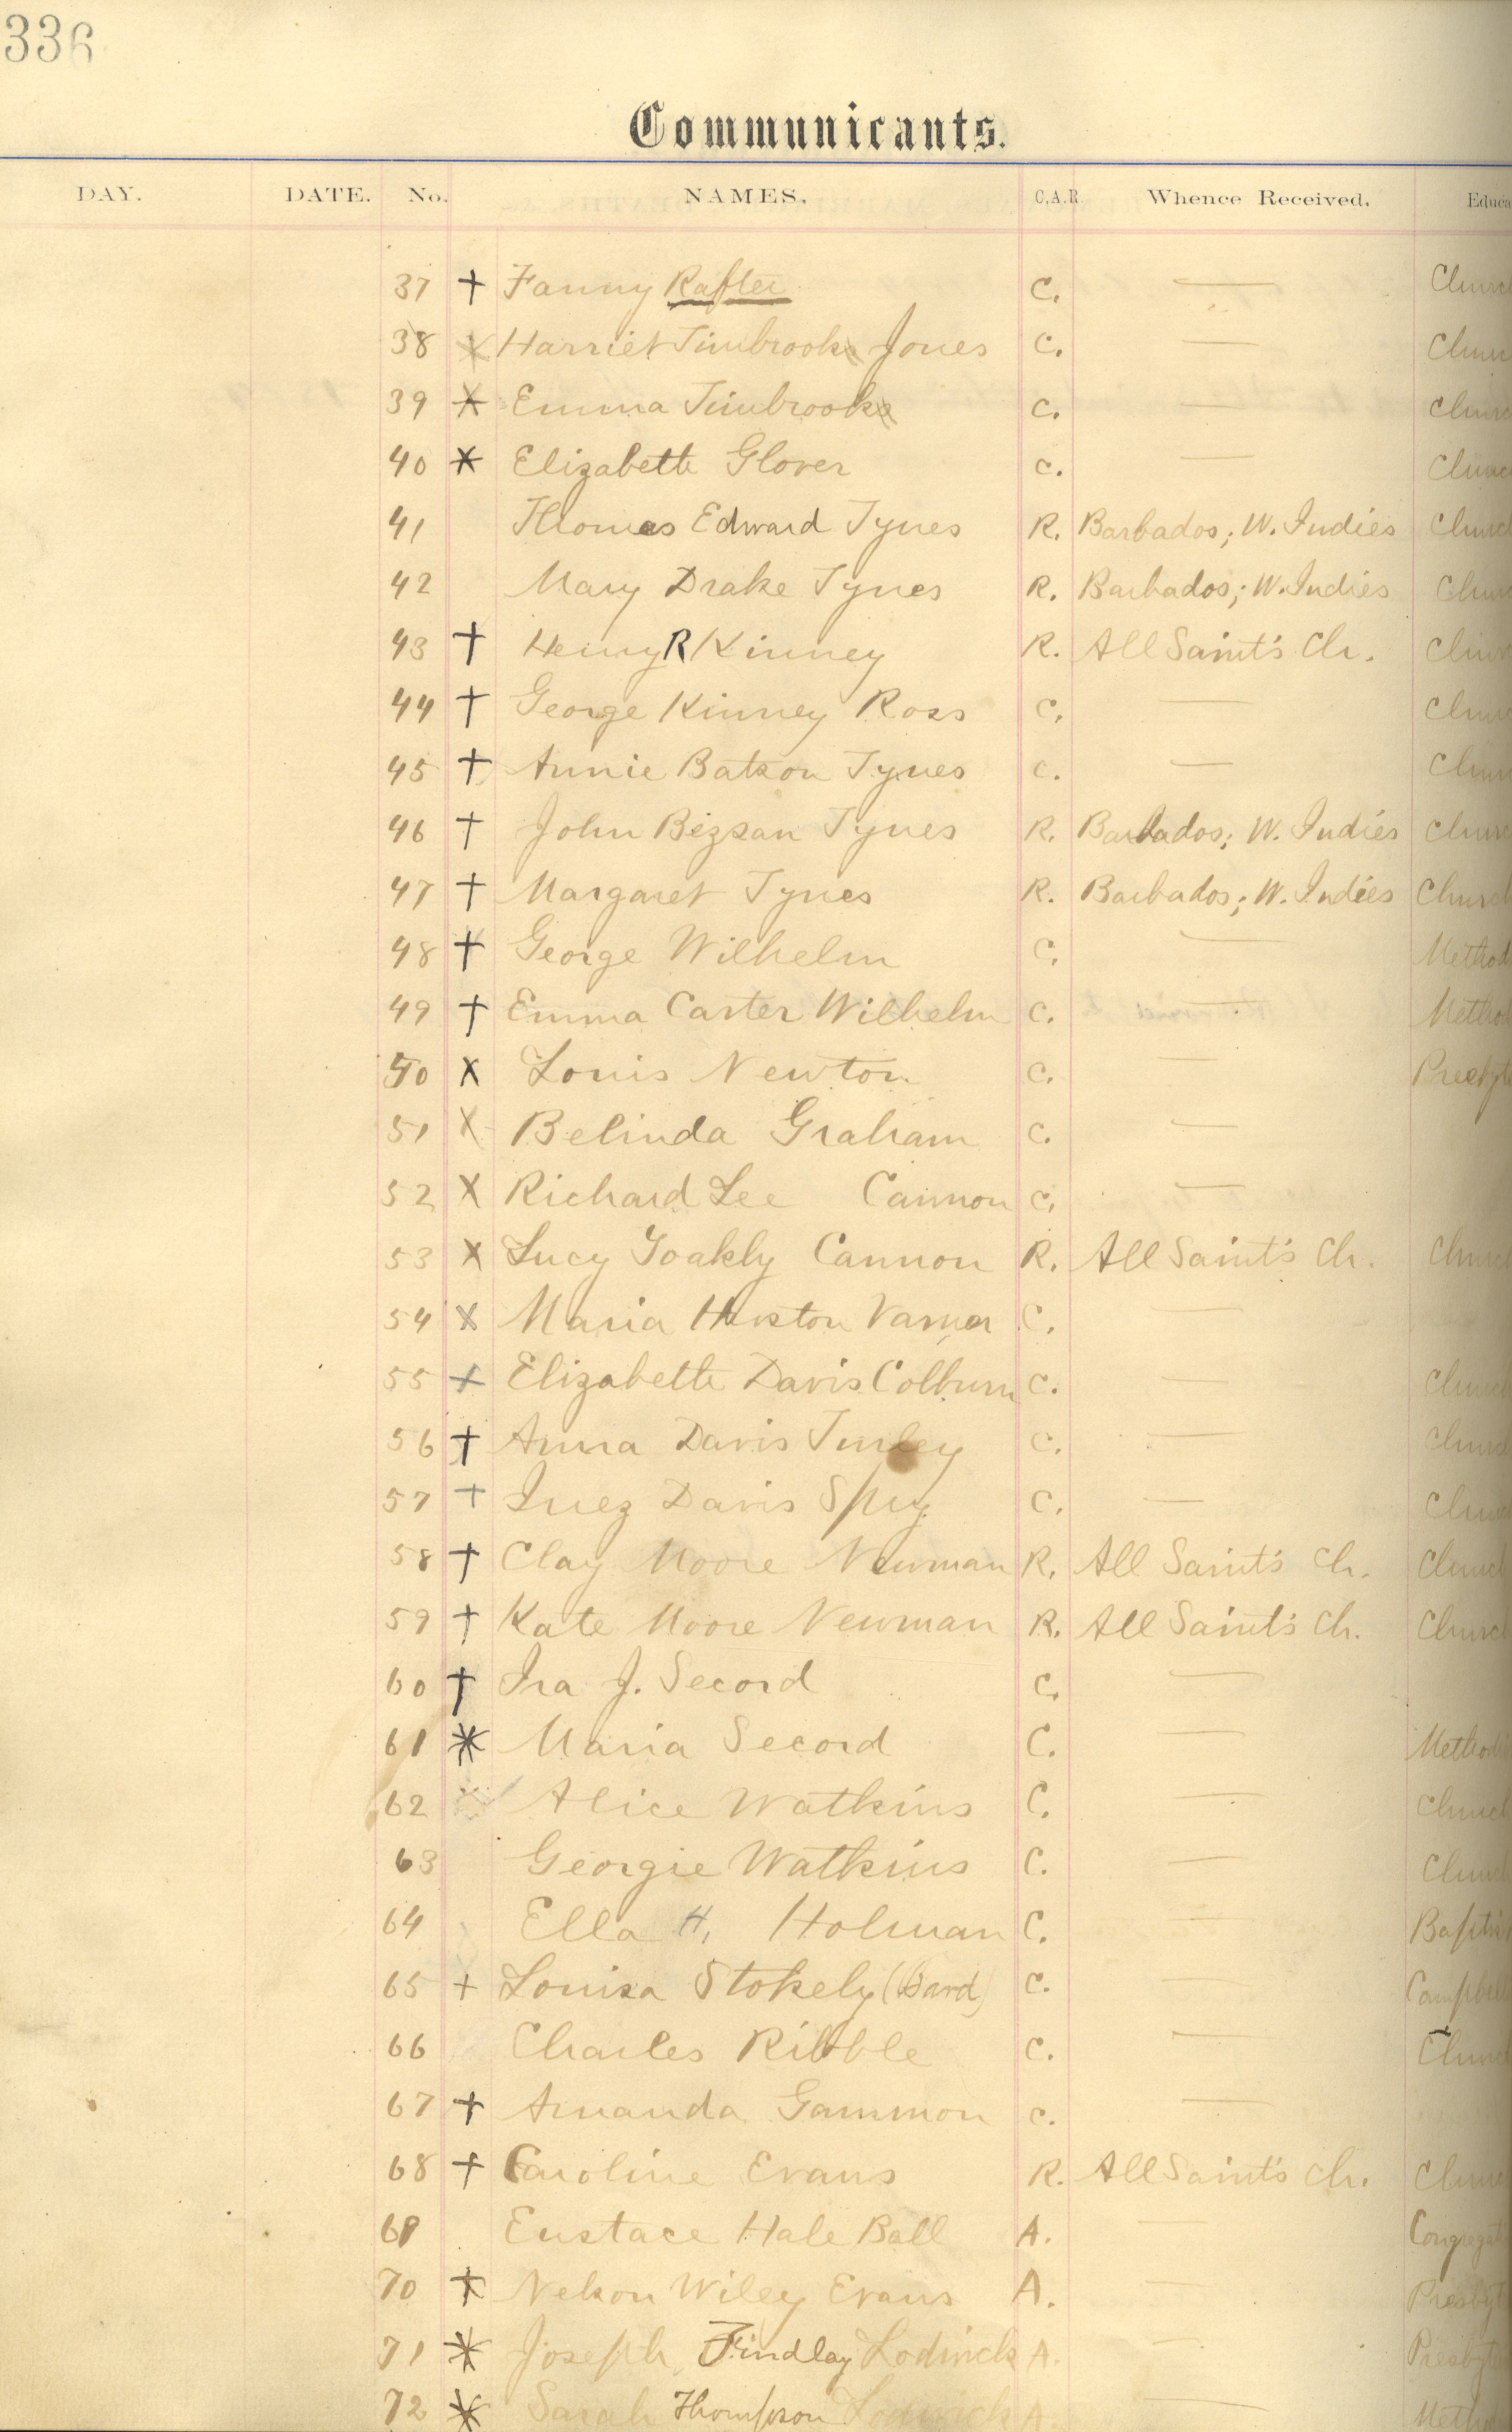 336
Communicants.
DAY. DATE. No. NAMES. C.A.R. Whence Received. Educa
37 † Fanny Rafter C. — Church
38 Harriet Timbrooks Jones C. — Chur
39 Emma Timbrooks C. — Church
40 Elizabeth Glover C. — Churc
41 Thomas Edward Tynes R. Barbados; W. Indies Church
42 Mary Drake Tynes R. Barbados; W. Indies Churc
43 † Henry R Kinney R. All Saint's Ch. Chur
44 † George Kinney Ross C. — Churc
45 † Annie Batson Tynes C. — Chur
46 † John Tynes R. Barbados; W. Indies Churc
47 † Margaret Tynes R. Barbados; W. Indies Church
48 † George Wilhelm C. — Method
49 † Emma Carter Wilhelm C. — Method
50 X Louis Newton C. — Presbyte
51 X Belinda Graham C. —
52 X Richard Lee Cannon C. —
53 X Lucy Cannon R. All Saint's Ch. Church
54 X Maria Huston C. —
55 Elizabeth Davis Colburn C. — Church
56 † Anna Davis C. — Church
57 † Inez Davis C. — Church
58 † Clay Moore Newman R. All Saint's Ch. Church
59 † Kate Moore Newman R. All Saint's Ch. Church
60 † Ira J. Secord C. —
61 Maria Secord C. — Methodi
62 Alice Watkins C. — Church
63 Georgie Watkins C. — Church
64 Ella H. Holman C. — Baptis
65 + Louisa Stokely C. Campbell
66 Charles Ribble C. — Church
67 † Amanda Gammon C. —
68 † Caroline Evans R. All Saint's Ch. Churc
69 Eustace Hale Ball A. — Congregat
70 † Nelson Wiley Evans A. — Presbyt
71 Joseph Findlay Lodwick A. — Presbyte
72 Sarah Thompson Lodwick A. — Metho